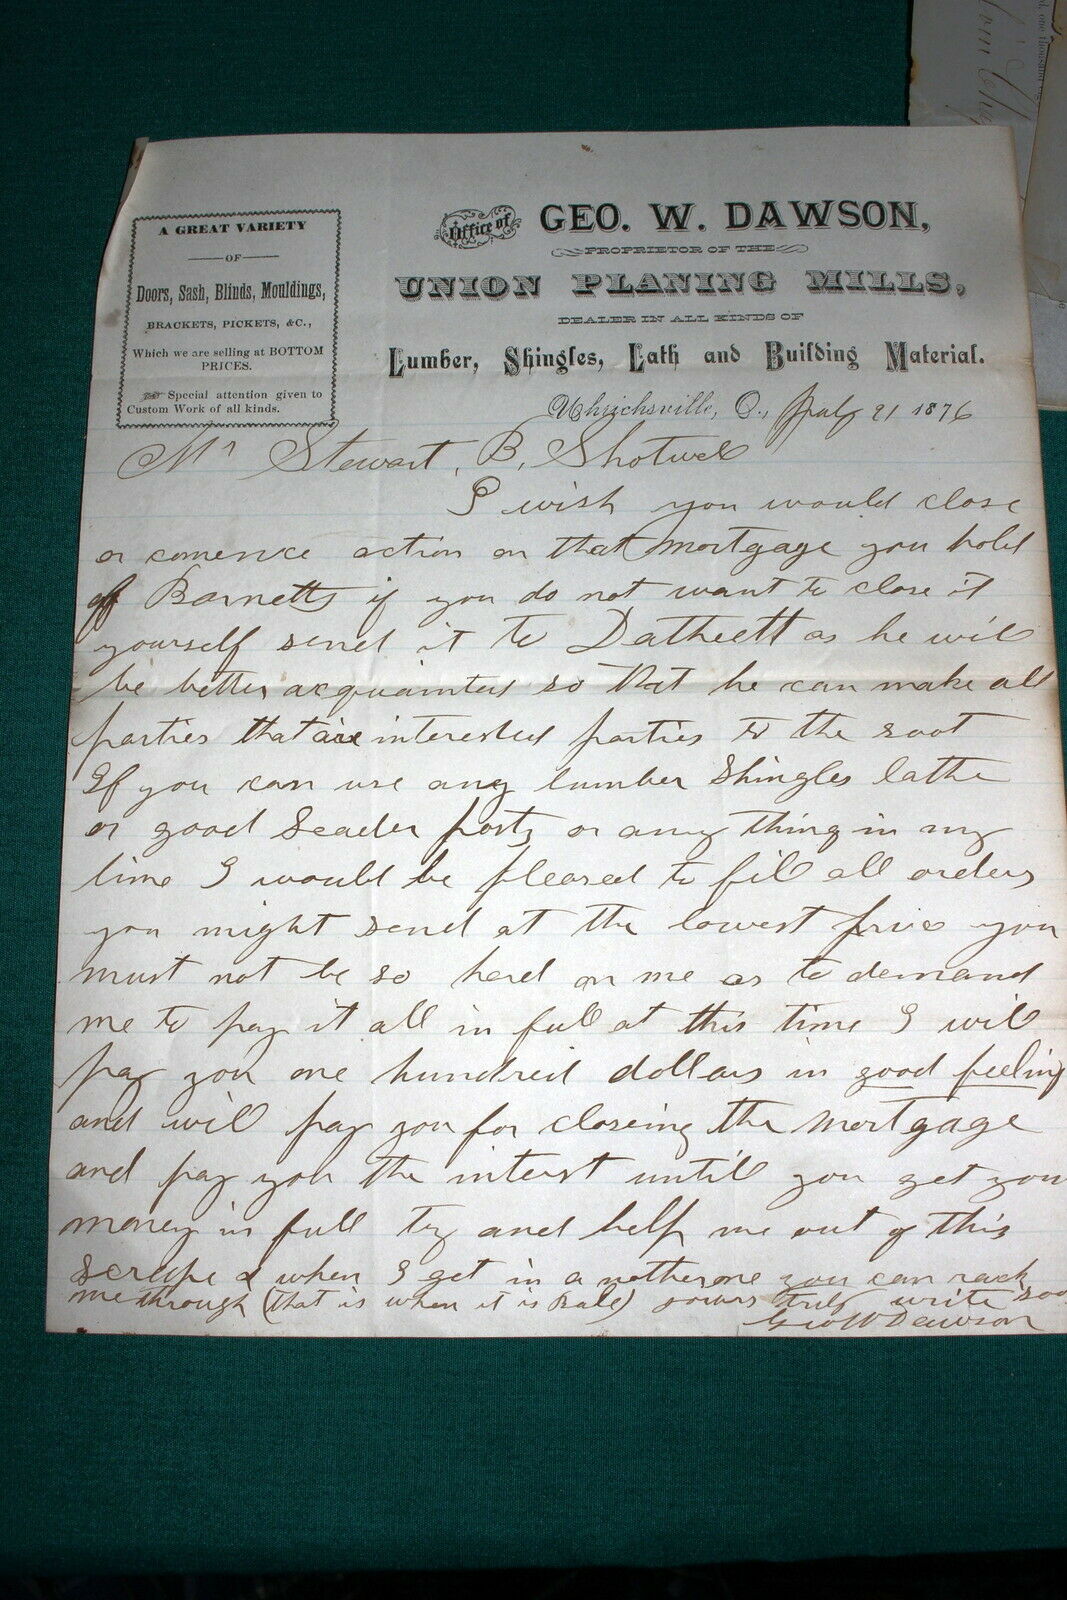 A GREAT VARIETY
OF
Doors, Sash, Blinds, Mouldings,
BRACKETS, PICKETS, &C.,
Which we are selling at BOTTOM
PRICES.
Special attention given to
Custom Work of all kinds.
Office of GEO. W. DAWSON,
PROPRIETOR OF THE
UNION PLANING MILLS,
DEALER IN ALL KINDS OF
Lumber, Shingles, Lath and Building Material.
Uhrichsville, O., 21 1876
Mr Stewart, B, Shotwell
I wish you would close
or comence action on that mortgage you hold
of Barnetts if you do not want to close it
yourself send it to as he will
be better acquainted so that he can make all
parties that are interested parties to the soot
If you can use any lumber Shingles lathe
or good Seader posts or any thing in my
line I would be pleased to fill all orders
you might send at the lowest price you
must not be so hard on me as to demand
me to pay it all in full at this time I will
pay you one hundred dollars in good feeling
and will pay you for closeing the mortgage
and pay you the interst until you get you
money in full try and help me out of this
scrape & when I get in a nother one you can rack
me through (that is when it is Bale) yours truly write soo
Geo W Dawson
one thousand